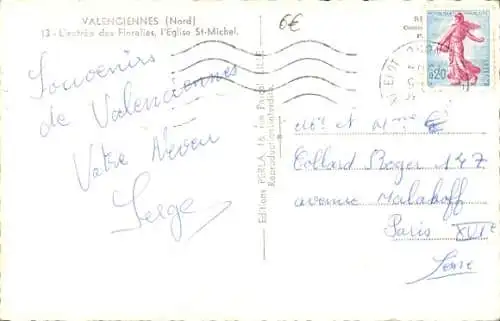 VALENCIENNES (Nord)
13 - L'entrée des Floralies, l'Eglise St-Michel.
6€
Souvenirs
de Valenciennes
Votre Neveu
Serge
Editions PERLA, 16, rue Pascal, LILLE
Reproduction interdite
0,20
Mr et Mme
Collard Roger 147
avenue Malakoff
Paris XVIe
Seine